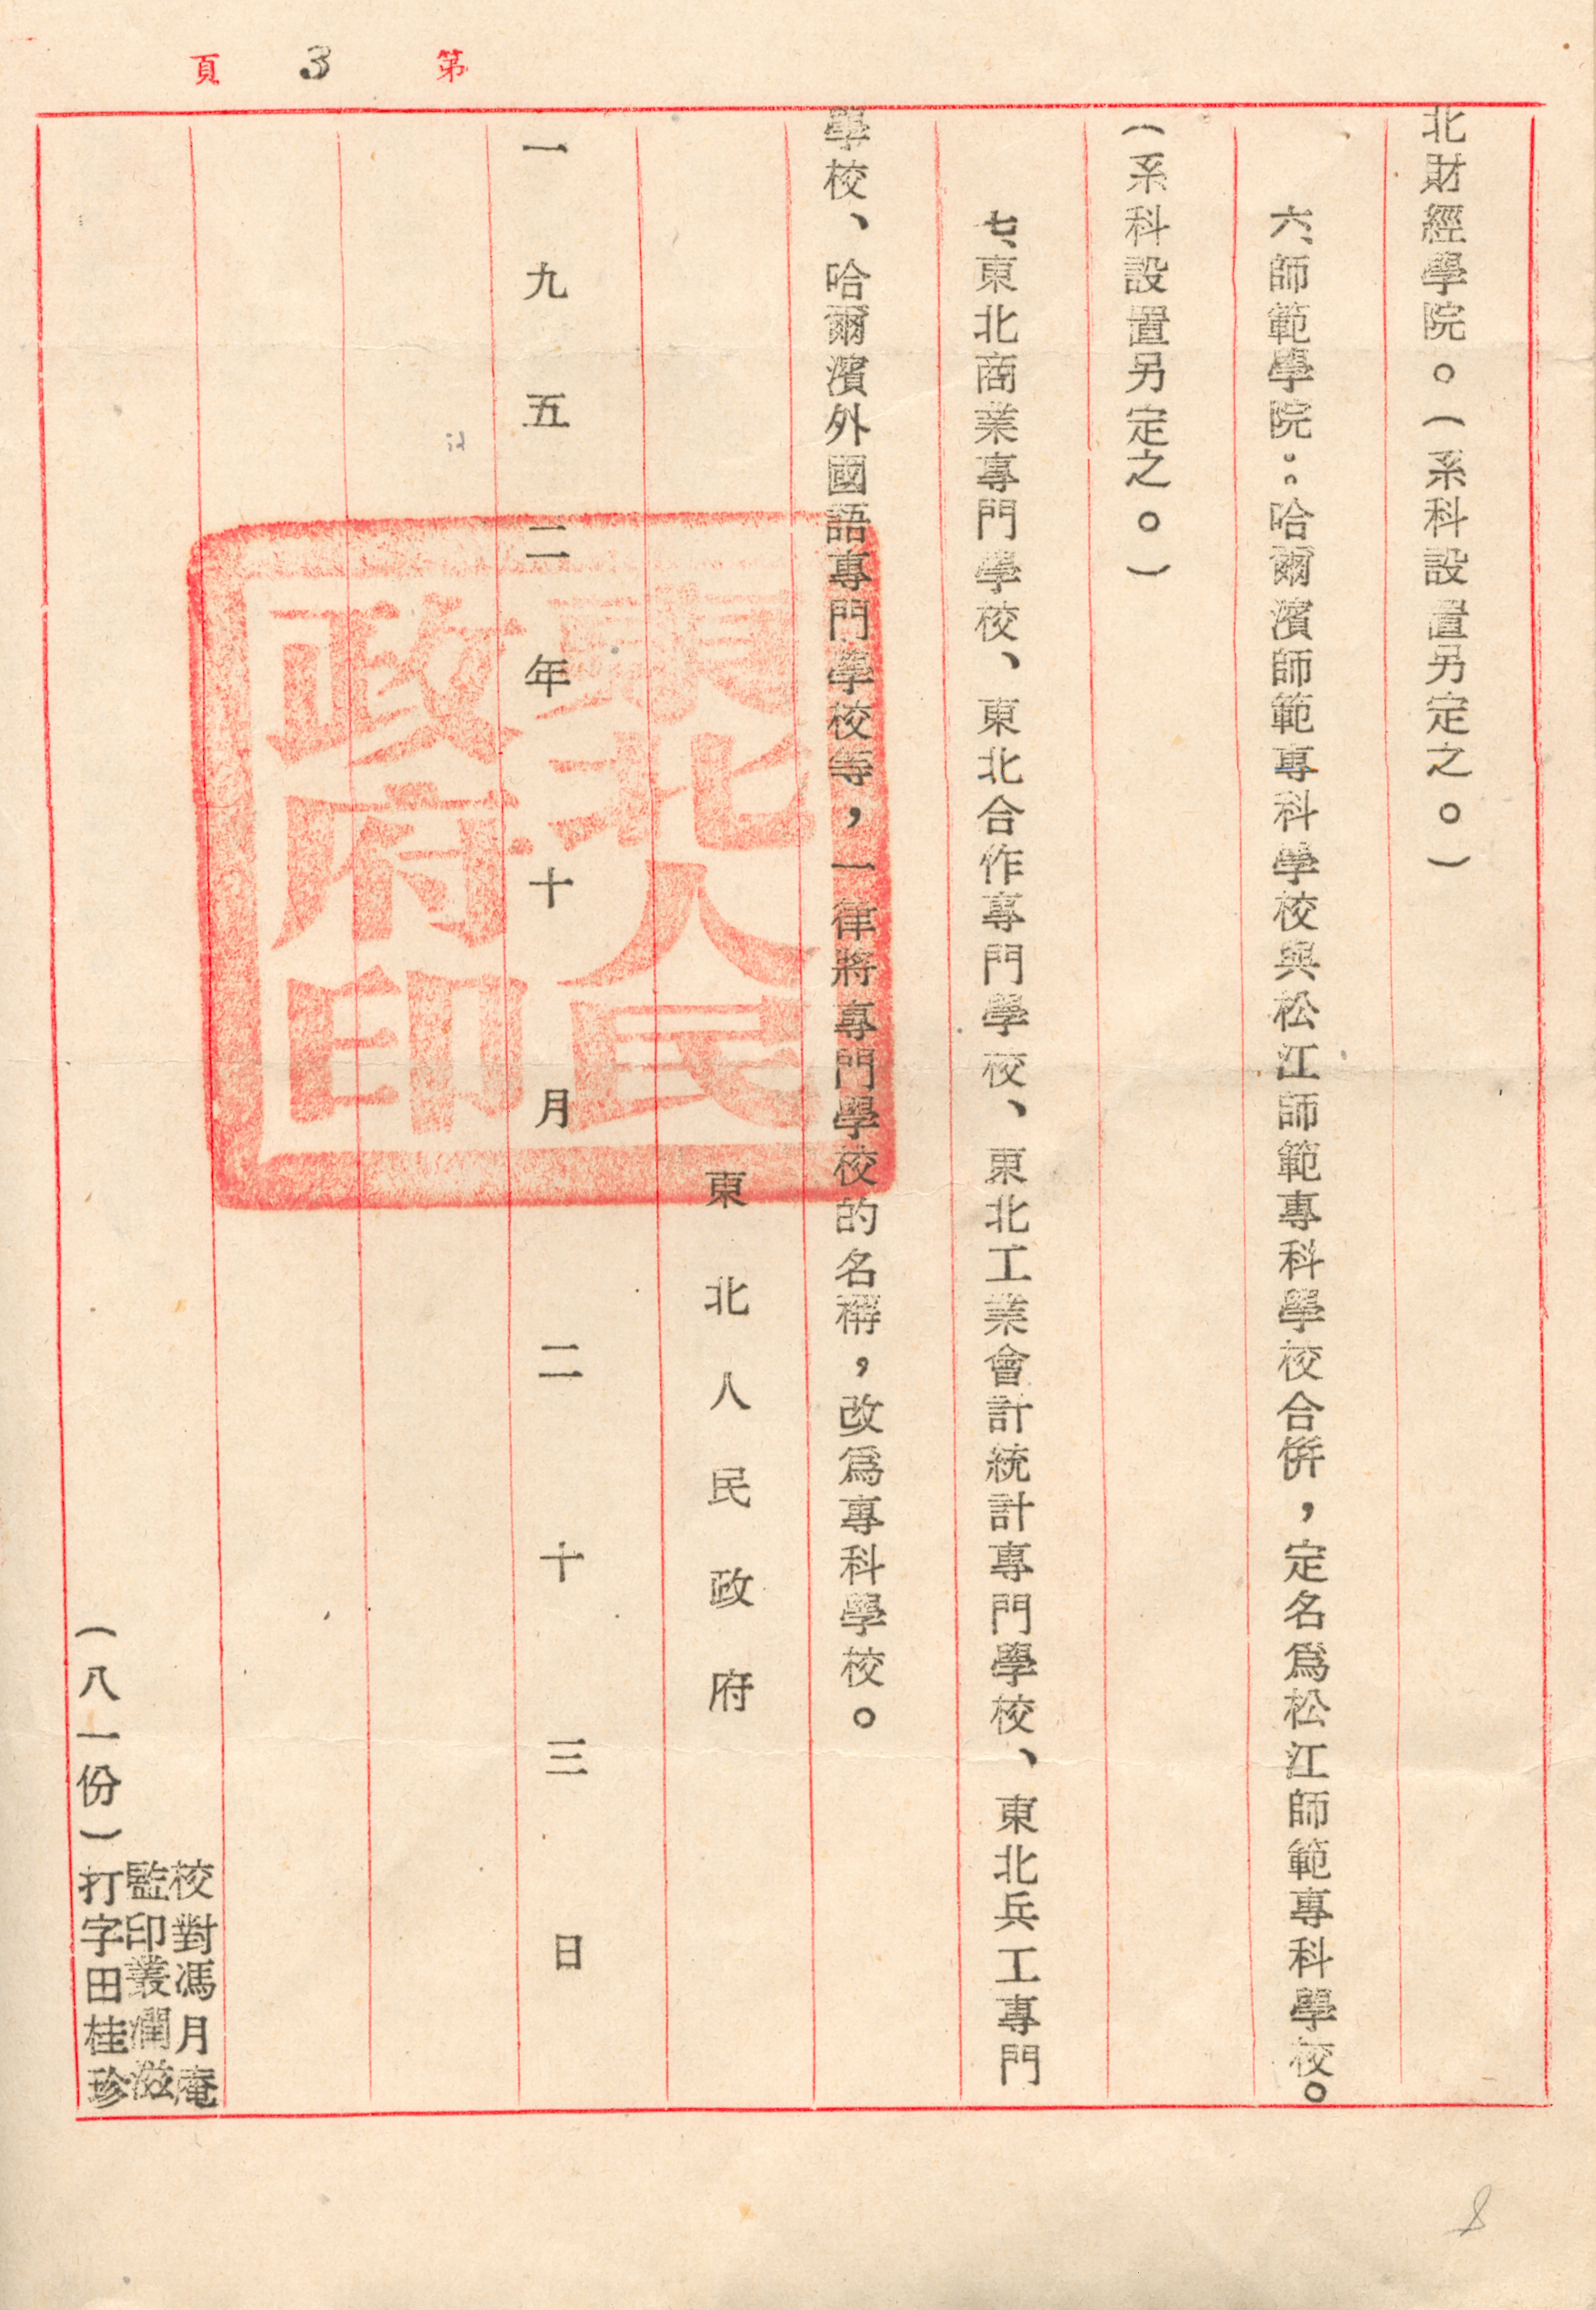 第 3 頁
北財經學院。(系科設置另定之。)
六、師範學院：哈爾濱師範專科學校與松江師範專科學校合倂，定名爲松江師範專科學校。
(系科設置另定之。)
七、東北商業專門學校、東北合作專門學校、東北工業會計統計專門學校、東北兵工專門
學校、哈爾濱外國語專門學校等，一律將專門學校的名稱，改爲專科學校。
東北人民政府
一九五二年十月二十三日
東北人民
政府印
校對馮月庵
監印叢潤滋
打字田桂珍
(八一份)
8